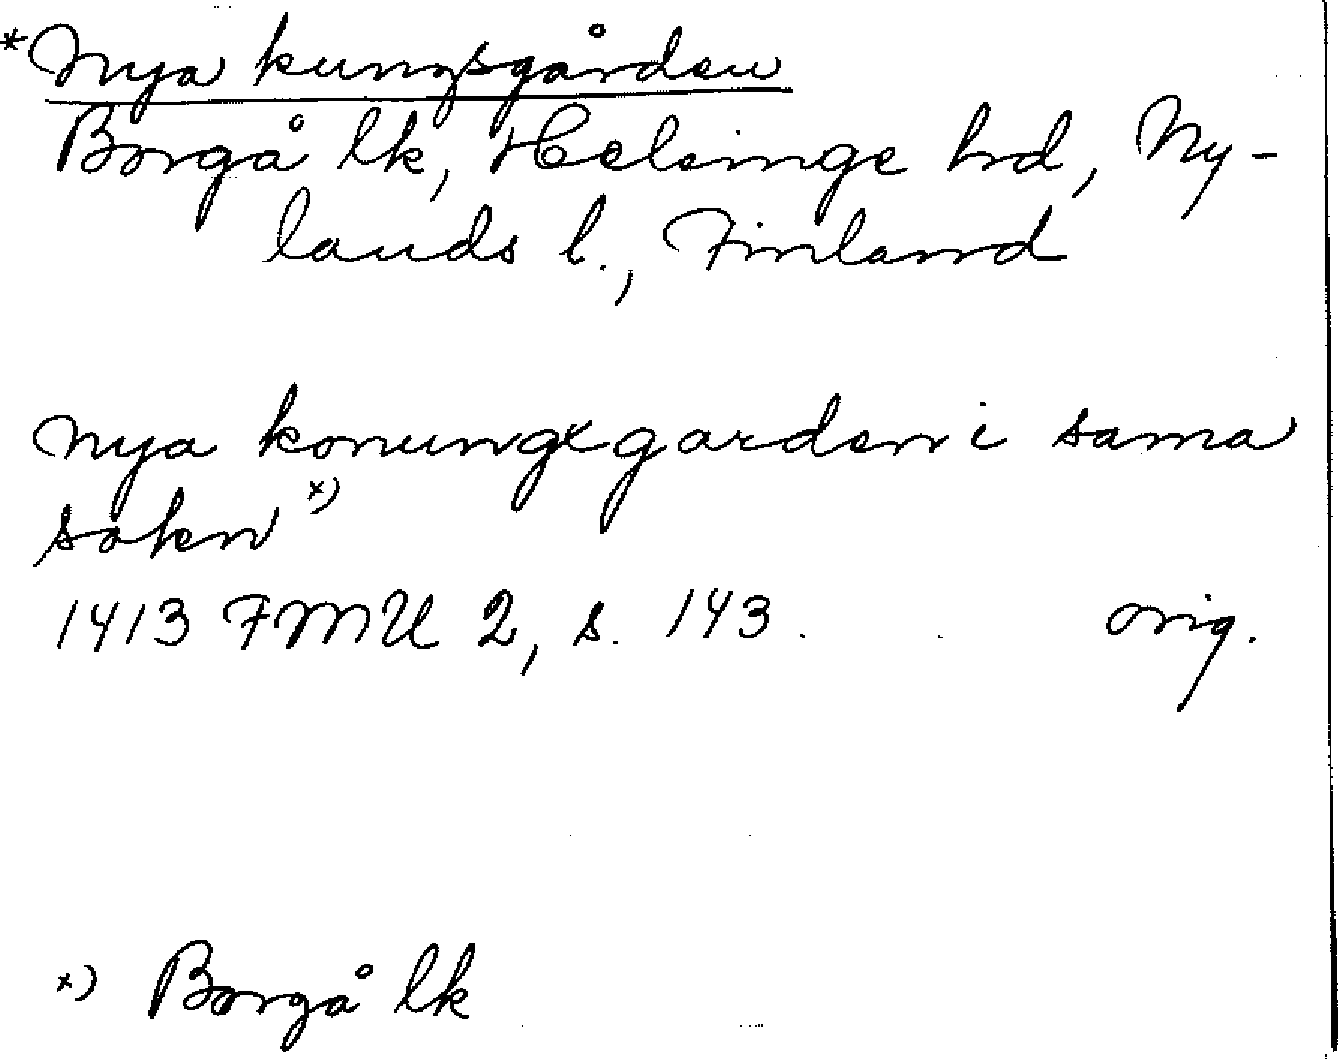 *Nya kungsgården
Borgå lk, Helsinge hd, Ny-
lands l., Finland
nya konungxgarden i sama
sokn x)
1413 FMU 2, s. 143. orig.
x) Borgå lk